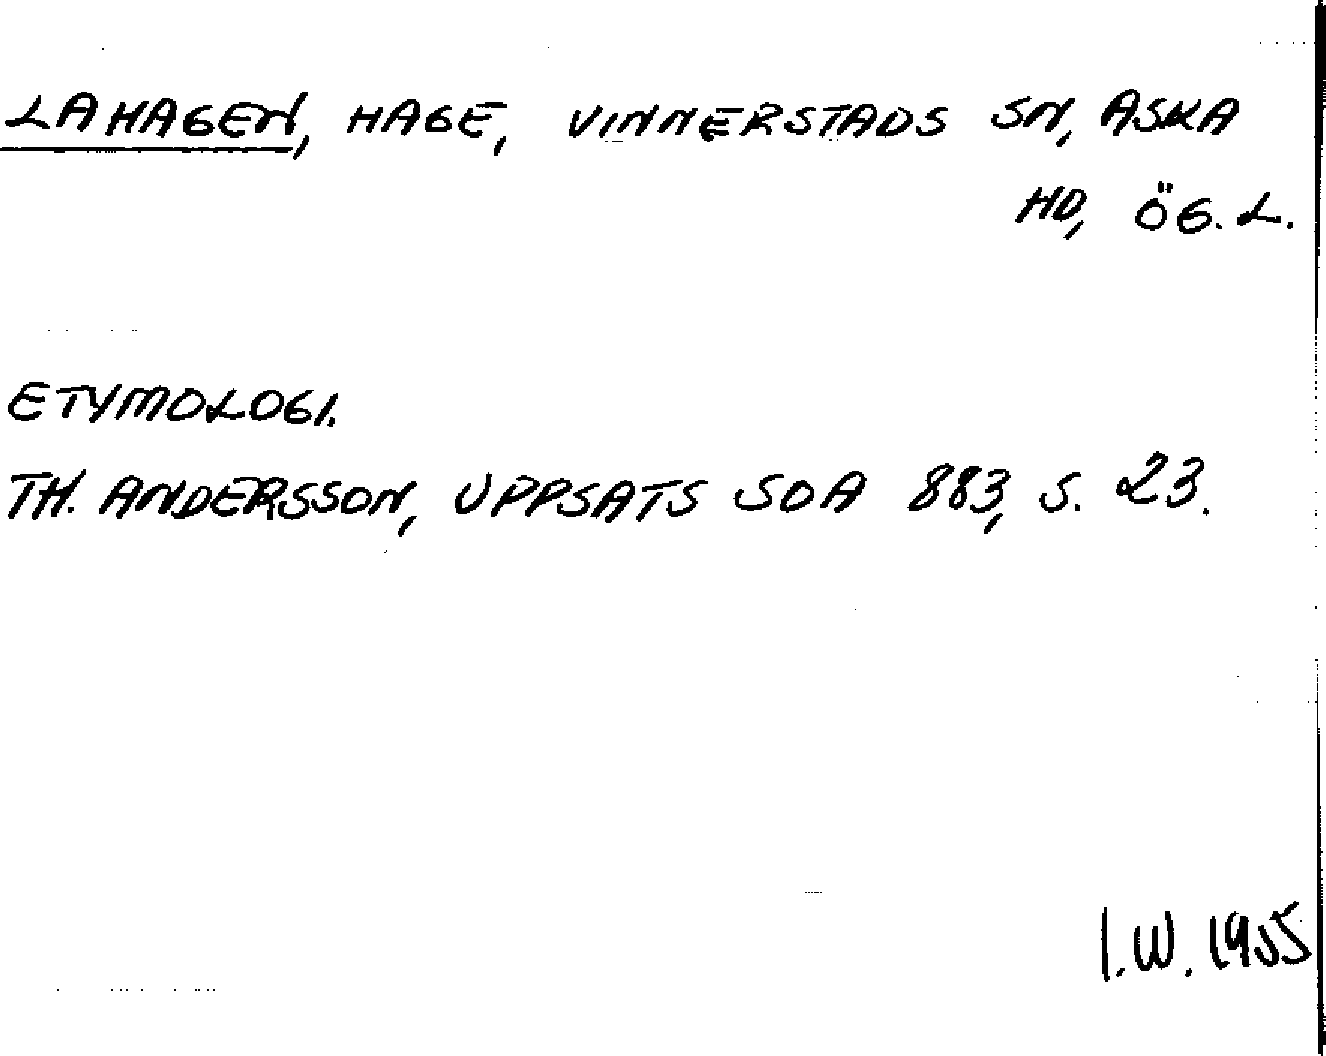 LAHAGEN, HAGE, VINNERSTADS SN, ASKA
HD, ÖG. L.
ETYMOLOGI.
TH. ANDERSSON, UPPSATS SOA 883, S. 23.
I.W. 1955